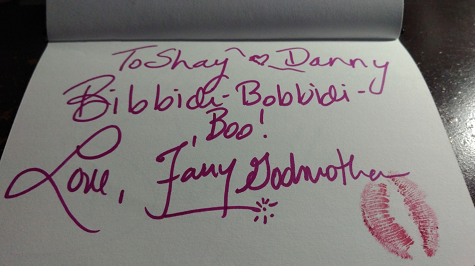 To Shay ♡ Danny
Bibbidi-Bobbidi-
Boo!
Love, Fairy Godmother